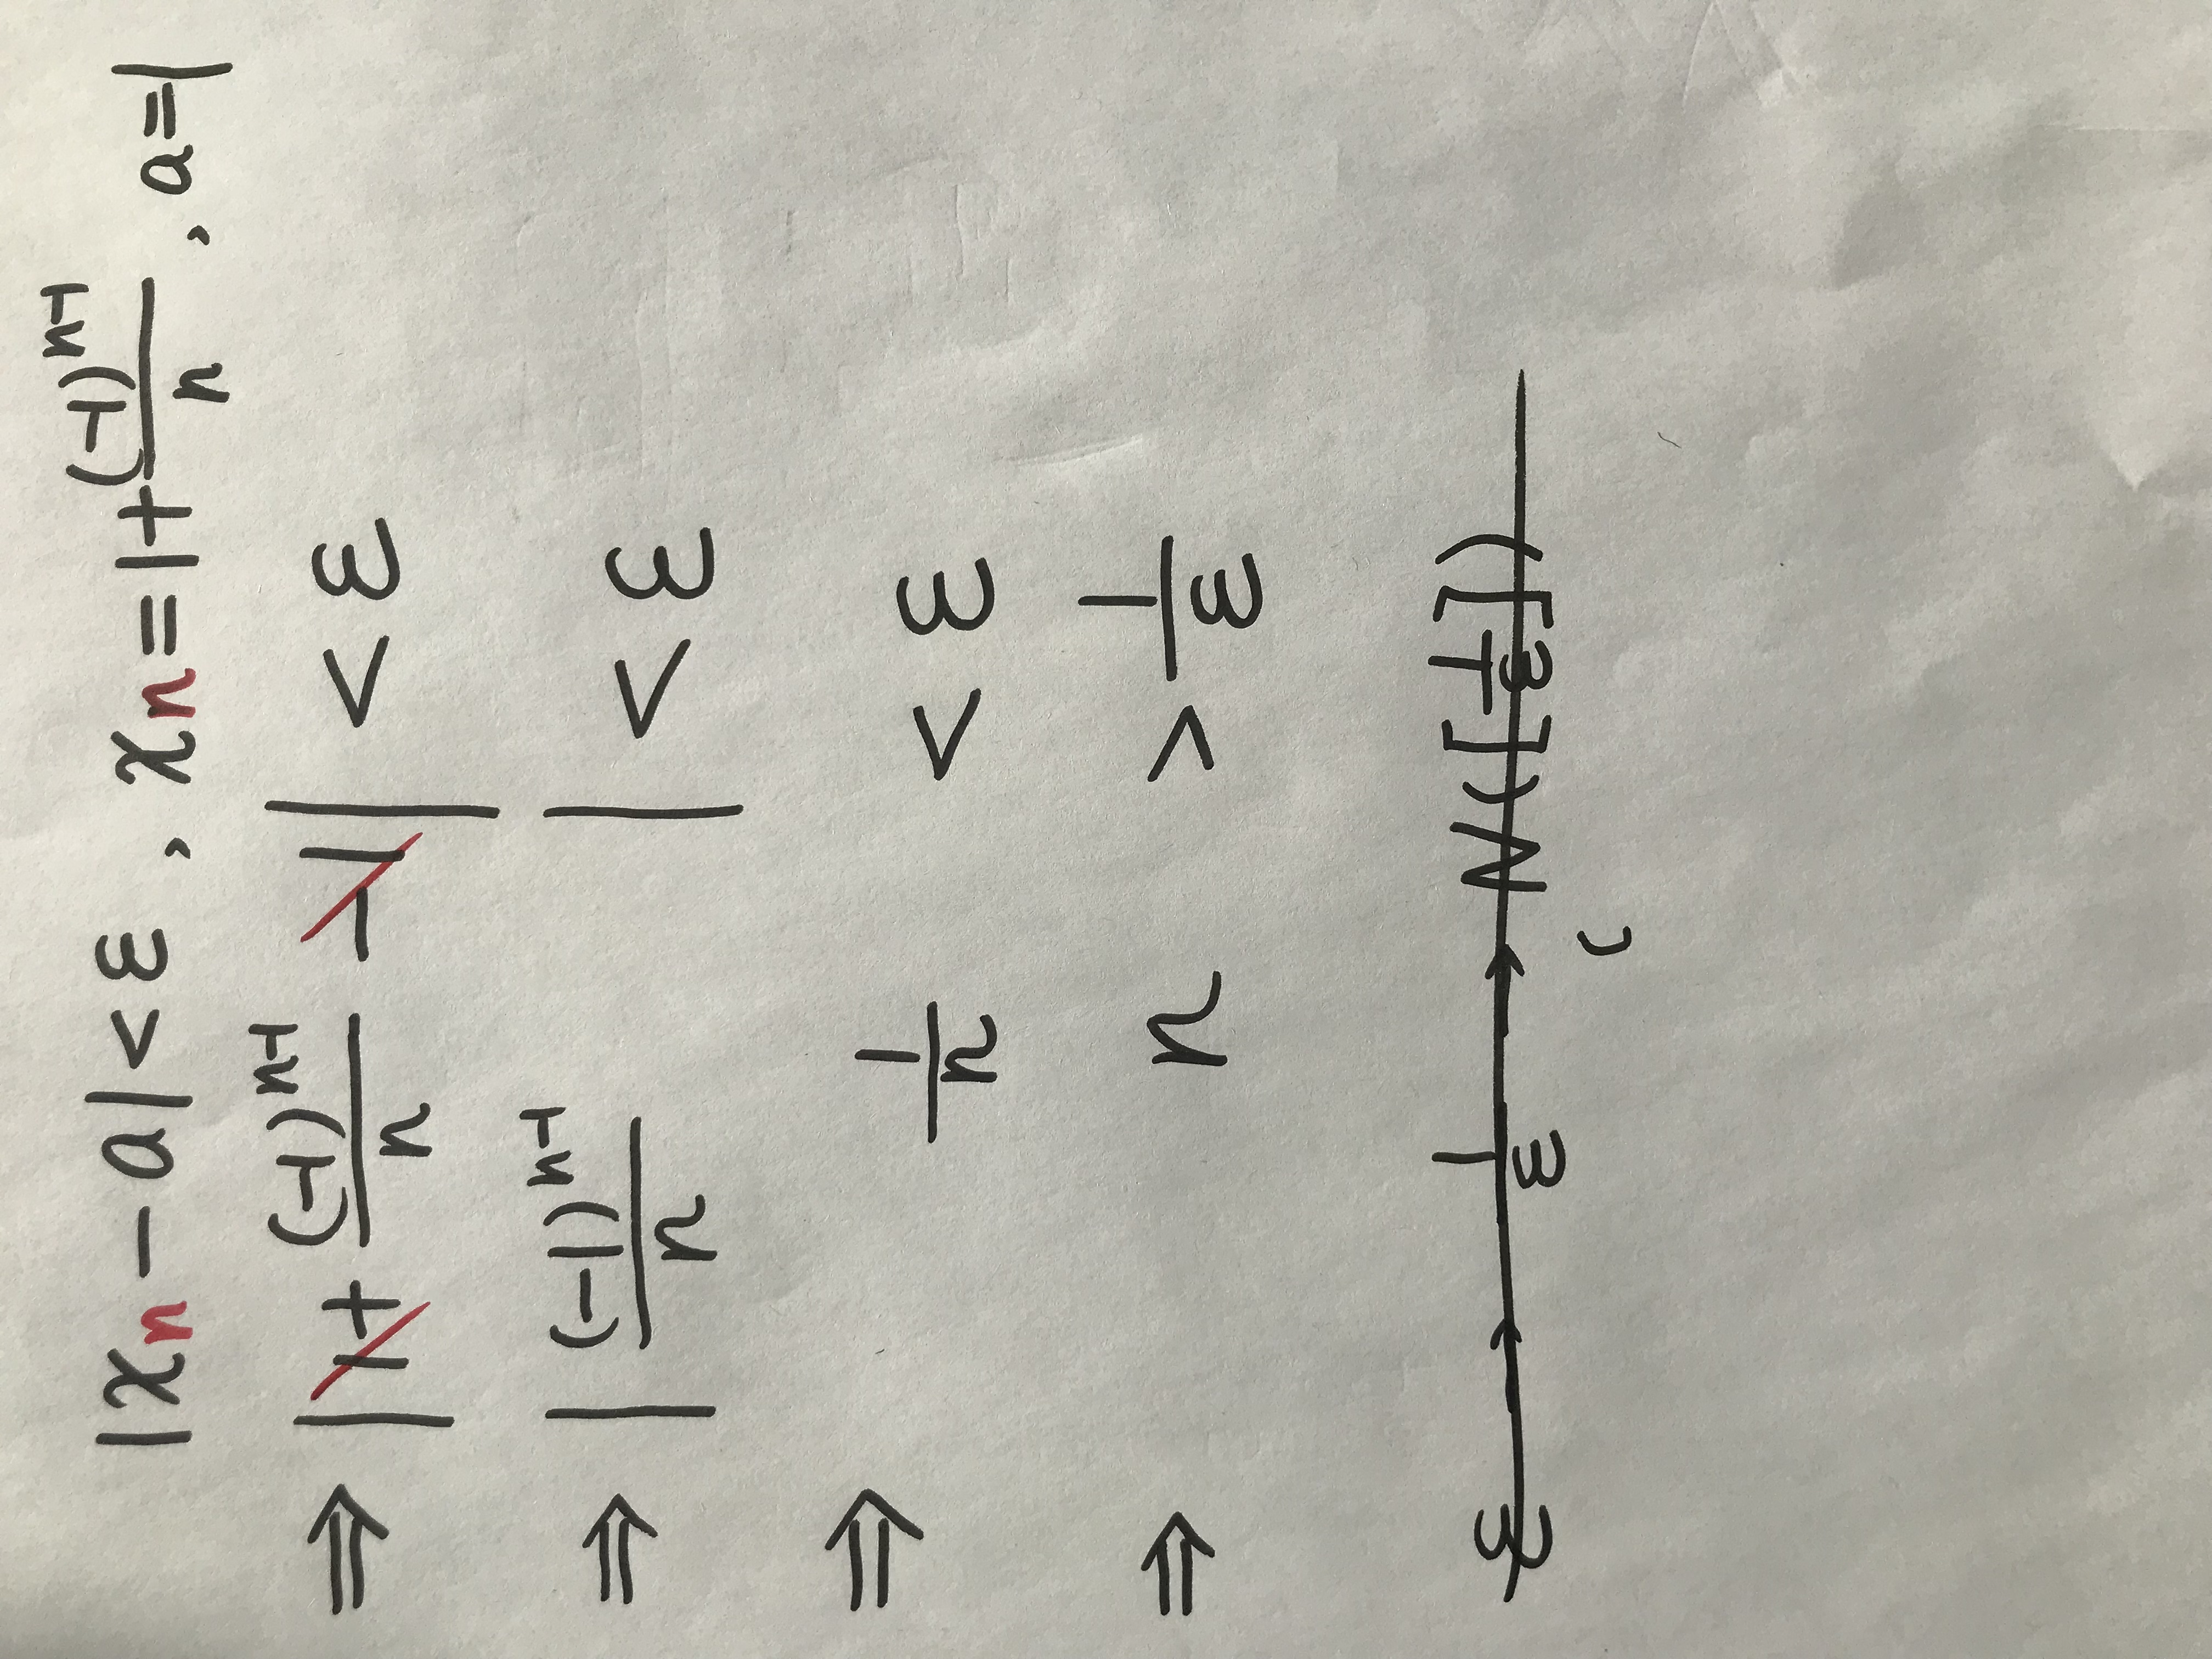 |xn − a| < ε , xn = 1 + (-1)^(n-1)/n , a = 1
⇒ |1 + (-1)^(n-1)/n − 1| < ε
⇒ |(-1)^(n-1)/n| < ε
⇒ 1/n < ε
⇒ n > 1/ε
ε → 1/ε → N([1/ε])
(